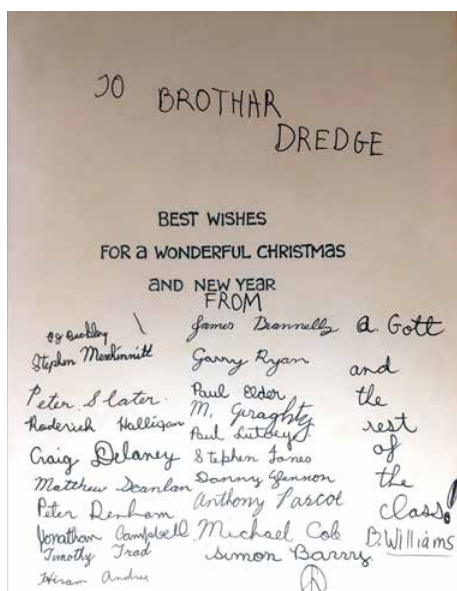 TO BROTHAR
DREDGE
BEST WISHES
FOR a WONDERFUL CHRISTMAS
aND NEW YEAR
FROM
Buckley
Stephen
Peter Slater.
Roderick Halligan
Craig Delaney
Matthew Scanlan
Peter Denham
Jonathan Campbell
Timothy Trad
Hiram Andreu
James Brannelly
Garry Ryan
Paul Elder
M. Geraghty
Paul
Stephen Jones
Danny Glennon
Anthony Pascoe
Michael Cob
Simon Barry
a. Gott
and
the
rest
of
the
class.
B. Williams